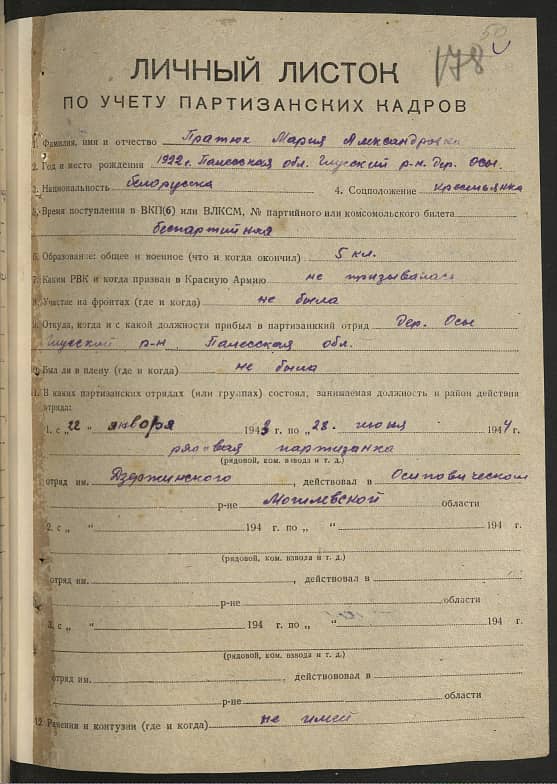 50
178
ЛИЧНЫЙ ЛИСТОК
ПО УЧЕТУ ПАРТИЗАНСКИХ КАДРОВ
1. Фамилия, имя и отчество Пратюк Мария Александровна
2. Год и место рождения 1922 г. Полесская обл. Глусский р-н. Дер. Осы.
3. Национальность белорусска 4. Соцположение крестьянка
5. Время поступления в ВКП(б) или ВЛКСМ, № партийного или комсомольского билета
беспартийная
6. Образование: общее и военное (что и когда окончил) 5 кл.
7. Каким РВК и когда призван в Красную Армию не призывалась
8. Участие на фронтах (где и когда) не была
9. Откуда, когда и с какой должности прибыл в партизанкий отряд Дер. Осы
Глусский р-н Полесская обл.
10. Был ли в плену (где и когда) не была
11. В каких партизанских отрядах (или группах) состоял, занимаемая должность и район действия
отряда:
1. с „22 " января 1943 г. по „28. " июня 1944 г.
рядовая партизанка
(рядовой, ком. взвода и т. д.)
отряд им. Дзержинского, действовал в Осиповическом
р-не Могилевской области
2. с „ " 194 г. по „ " 194 г.
(рядовой, ком. взвода и т. д.)
отряд им. , действовал в
р-не области
3. с „ " 194 г. по „ " 194 г.
(рядовой, ком. взвода и т. д.)
отряд им. , действововал в
р-не области
12. Ранения и контузии (где и когда) не имей